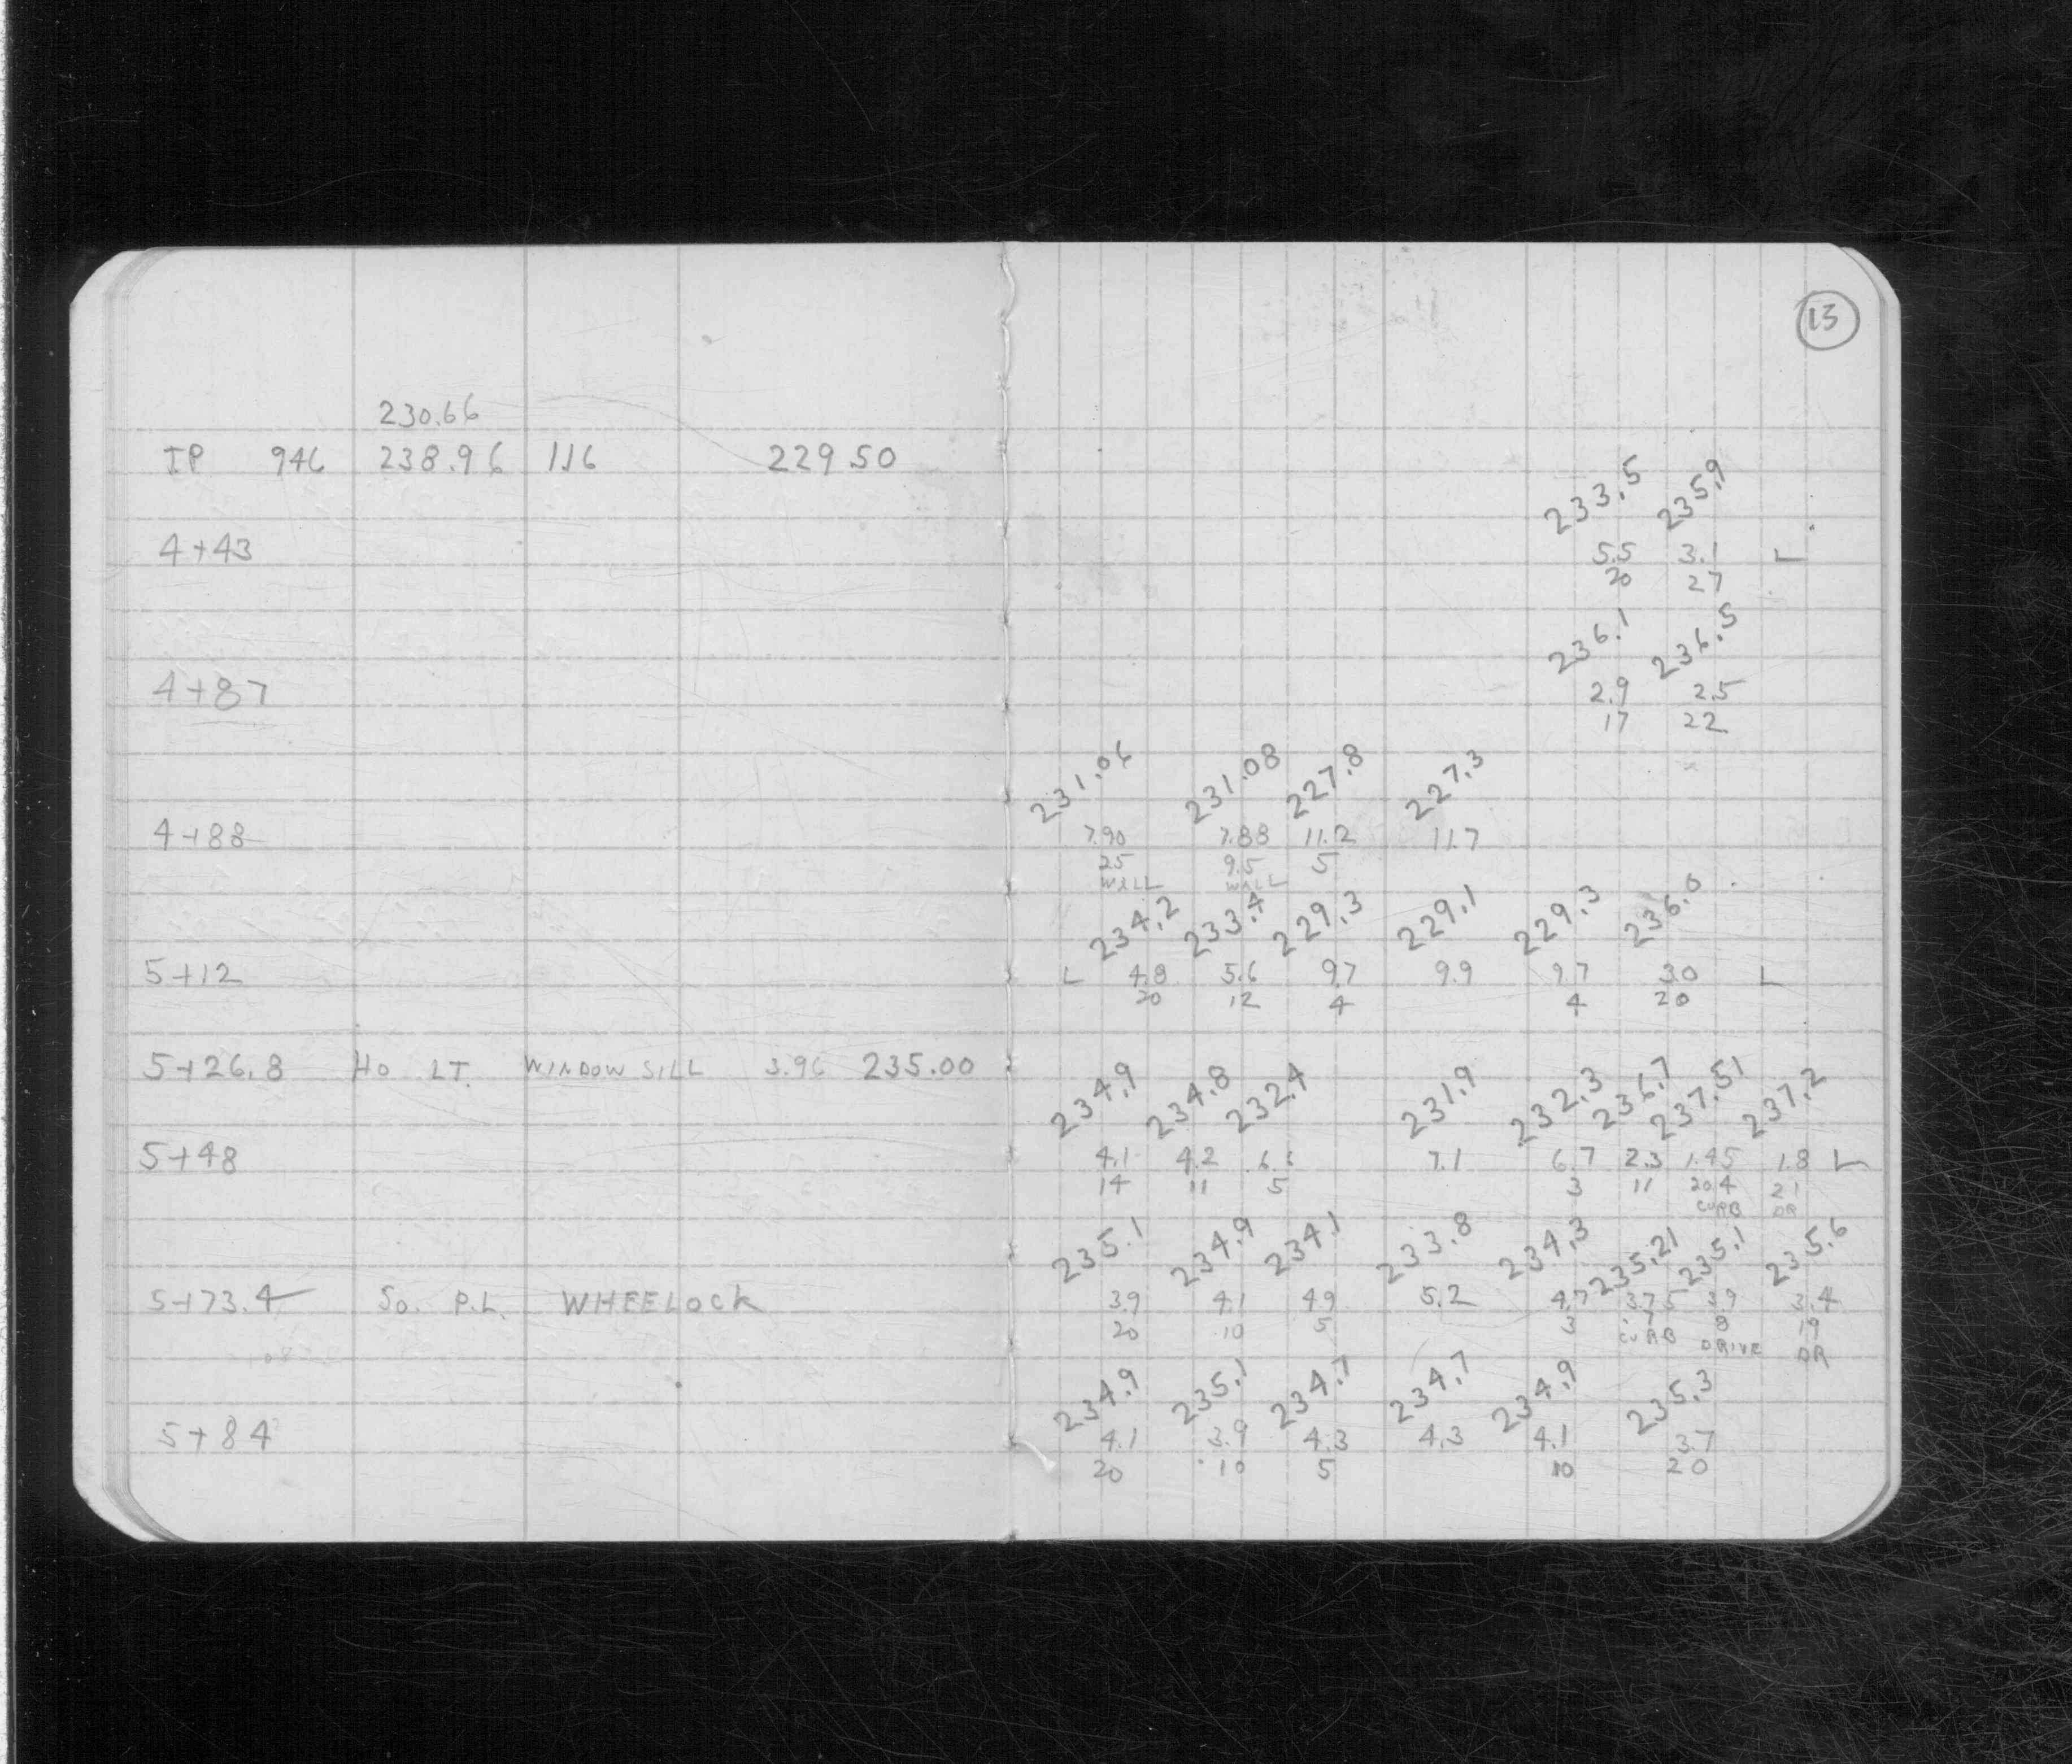 13
230.66
IP 946 238.96 1.16 229.50
233.5 235.9
4+43 5.5 3.1 L
20 27
236.1 236.5
4+87 2.9 2.5
17 22
231.06 231.08 227.8 227.3
4+88 7.90 7.88 11.2 11.7
25 9.5 5
WALL WALL
234.2 233.4 229.3 229.1 229.3 236.0
5+12 L 4.8 5.6 9.7 9.9 9.7 3.0 L
20 12 4 4 20
5+26.8 HO LT. WINDOW SILL 3.96 235.00
234.9 234.8 232.4 231.9 232.3 236.7 237.51 237.2
5+48 4.1 4.2 6.6 7.1 6.7 2.3 1.45 1.8 L
14 11 5 3 11 20.4 21
CURB DR
235.1 234.9 234.1 233.8 234.3 235.21 235.1 235.6
5+73.4 SO. P.L. WHEELOCK 3.9 4.1 4.9 5.2 4.7 3.75 3.9 3.4
20 10 5 3 7 8 19
CURB DRIVE DR
234.9 235.1 234.7 234.7 234.9 235.3
5+84 4.1 3.9 4.3 4.3 4.1 3.7
20 10 5 10 20